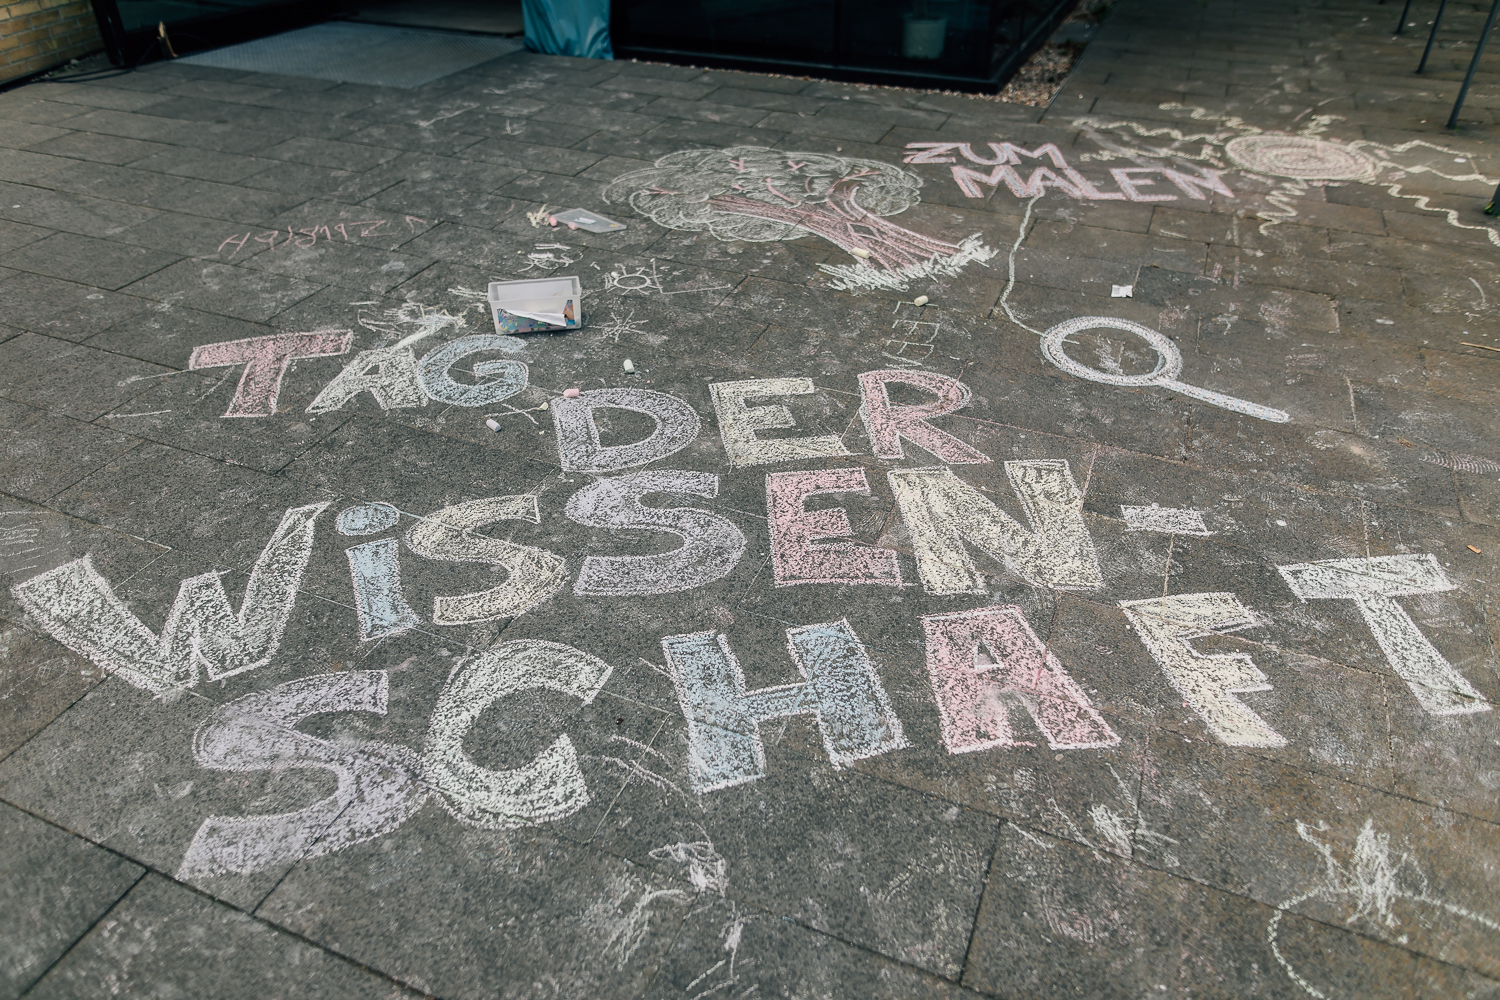 ZUM
MALEN
TAG DER
WiSSEN-
SCHAFT